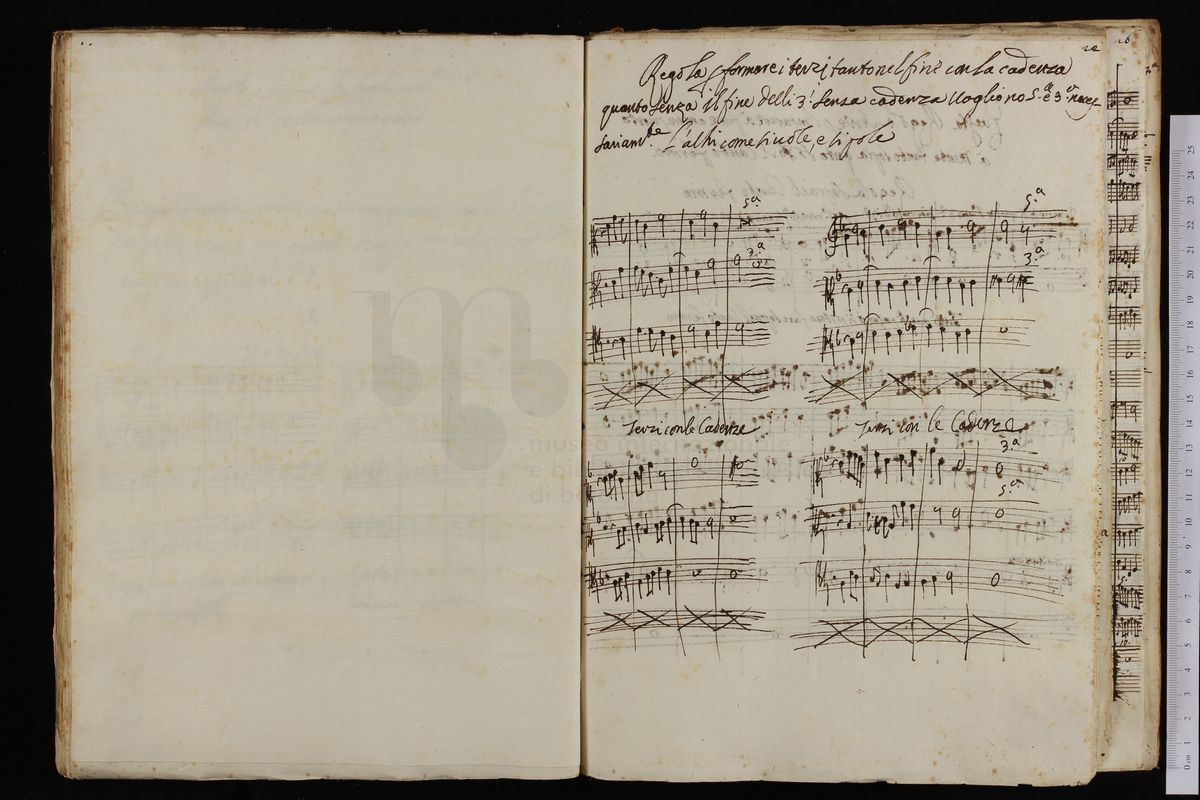 22
26
Regola p formare i terzi tanto nel fine con la cadenza
quanto senza il fine delli 3i senza cadenza vogliono 5.a e 3.a neces
sariam.te L'altri come si vole, e si pole
5.a
5.a
3.a
3.a
Terzi con le Cadenze
Terzi con le Cadenze
3.a
5.a
museo internazionale
e bi
di bo
0 cm 1 2 3 4 5 6 7 8 9 10 11 12 13 14 15 16 17 18 19 20 21 22 23 24 25